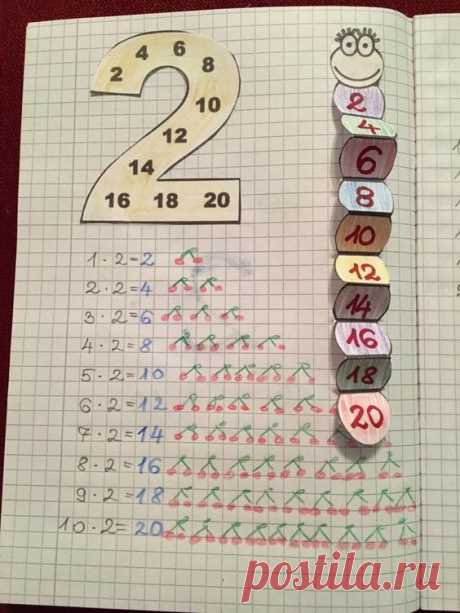 2 4 6 8
10
12
14
16 18 20
2
4
6
8
10
12
14
16
18
20
1 · 2 = 2
2 · 2 = 4
3 · 2 = 6
4 · 2 = 8
5 · 2 = 10
6 · 2 = 12
7 · 2 = 14
8 · 2 = 16
9 · 2 = 18
10 · 2 = 20
postila.ru